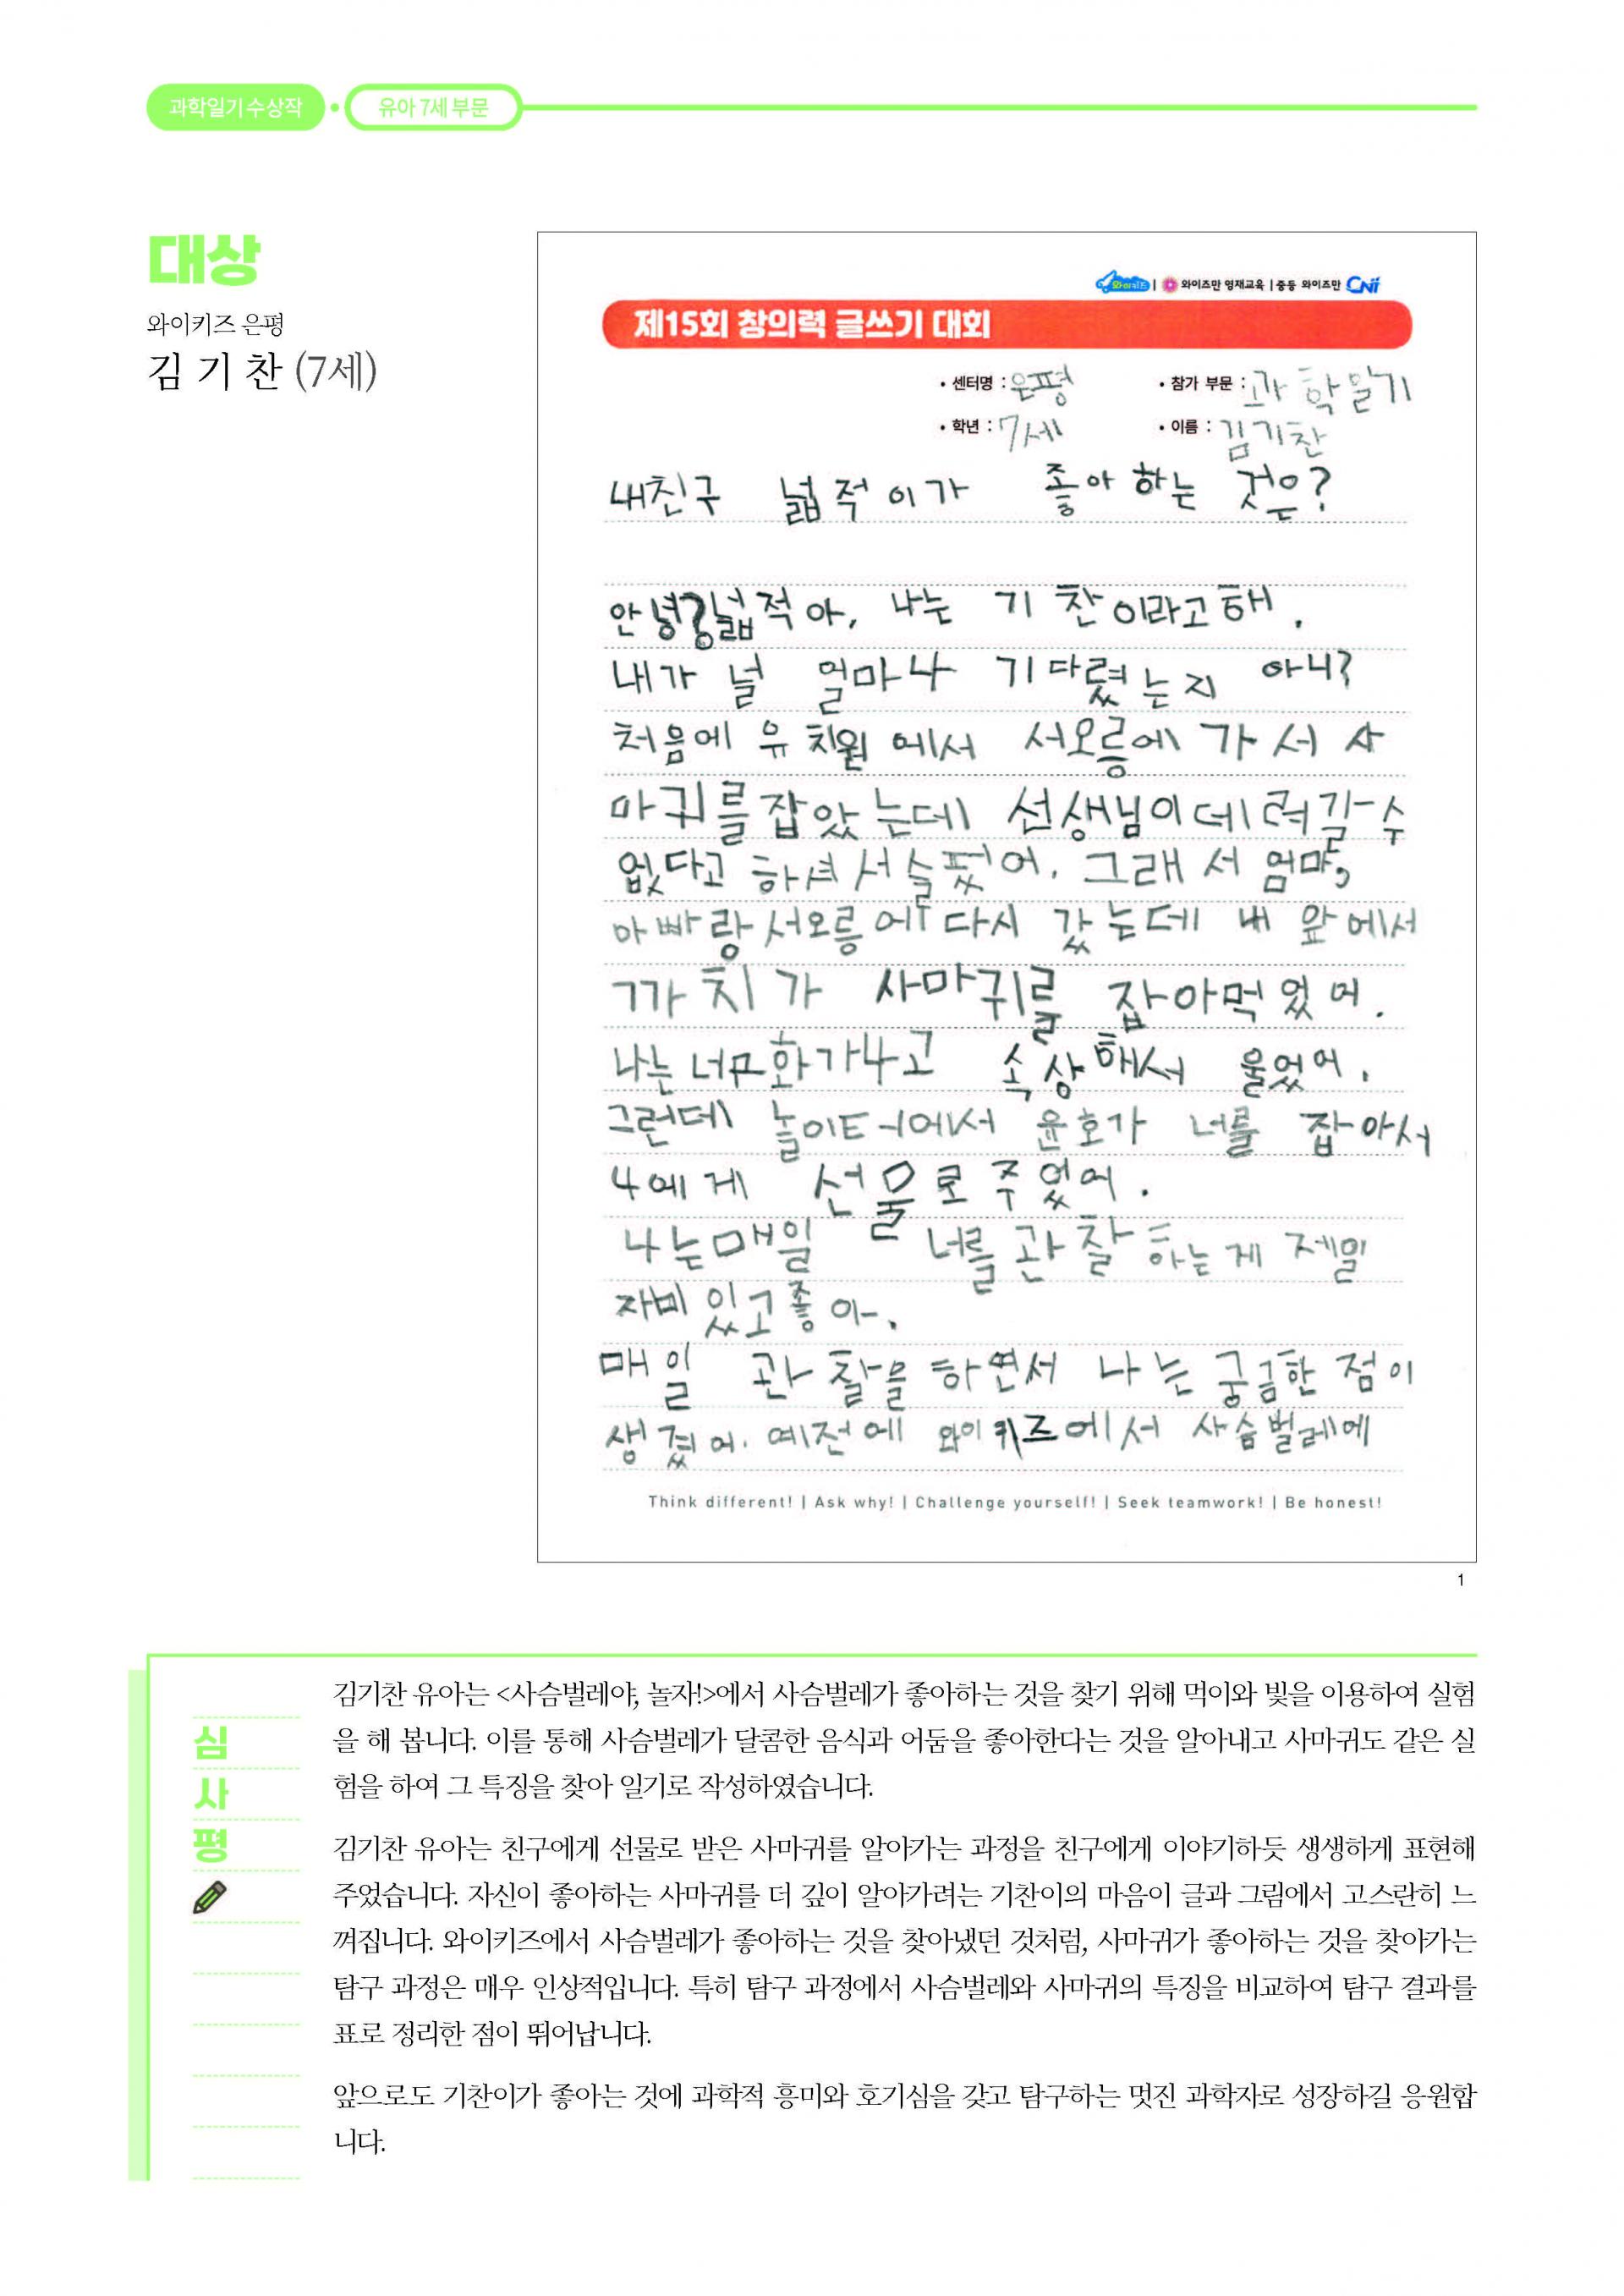 과학일기 수상작
유아 7세 부문
대상
와이키즈 은평
김 기 찬 (7세)
와이키즈 | 와이즈만 영재교육 | 중등 와이즈만 CNi
제15회 창의력 글쓰기 대회
• 센터명 : 은평 • 참가 부문 : 과학일기
• 학년 : 7세 • 이름 : 김기찬
내친구 넓적이가 좋아하는 것은?
안녕? 넓적아, 나는 기찬이라고해.
내가 널 얼마나 기다렸는지 아니?
처음에 유치원에서 서오릉에 가서 사
마귀를 잡았는데 선생님이 데려갈 수
없다고 하셔서 슬펐어. 그래서 엄마,
아빠랑 서오릉에 다시 갔는데 내 앞에서
까치가 사마귀를 잡아먹었어.
나는 너무 화가나고 속상해서 울었어.
그런데 놀이터에서 윤호가 너를 잡아서
나에게 선물로 주었어.
나는 매일 너를 관찰하는게 제일
재미있고 좋아.
매일 관찰을 하면서 나는 궁금한 점이
생겼어. 예전에 와이키즈에서 사슴벌레에
Think different! | Ask why! | Challenge yourself! | Seek teamwork! | Be honest!
1
심
사
평
김기찬 유아는 <사슴벌레야, 놀자!>에서 사슴벌레가 좋아하는 것을 찾기 위해 먹이와 빛을 이용하여 실험
을 해 봅니다. 이를 통해 사슴벌레가 달콤한 음식과 어둠을 좋아한다는 것을 알아내고 사마귀도 같은 실
험을 하여 그 특징을 찾아 일기로 작성하였습니다.
김기찬 유아는 친구에게 선물로 받은 사마귀를 알아가는 과정을 친구에게 이야기하듯 생생하게 표현해
주었습니다. 자신이 좋아하는 사마귀를 더 깊이 알아가려는 기찬이의 마음이 글과 그림에서 고스란히 느
껴집니다. 와이키즈에서 사슴벌레가 좋아하는 것을 찾아냈던 것처럼, 사마귀가 좋아하는 것을 찾아가는
탐구 과정은 매우 인상적입니다. 특히 탐구 과정에서 사슴벌레와 사마귀의 특징을 비교하여 탐구 결과를
표로 정리한 점이 뛰어납니다.
앞으로도 기찬이가 좋아는 것에 과학적 흥미와 호기심을 갖고 탐구하는 멋진 과학자로 성장하길 응원합
니다.